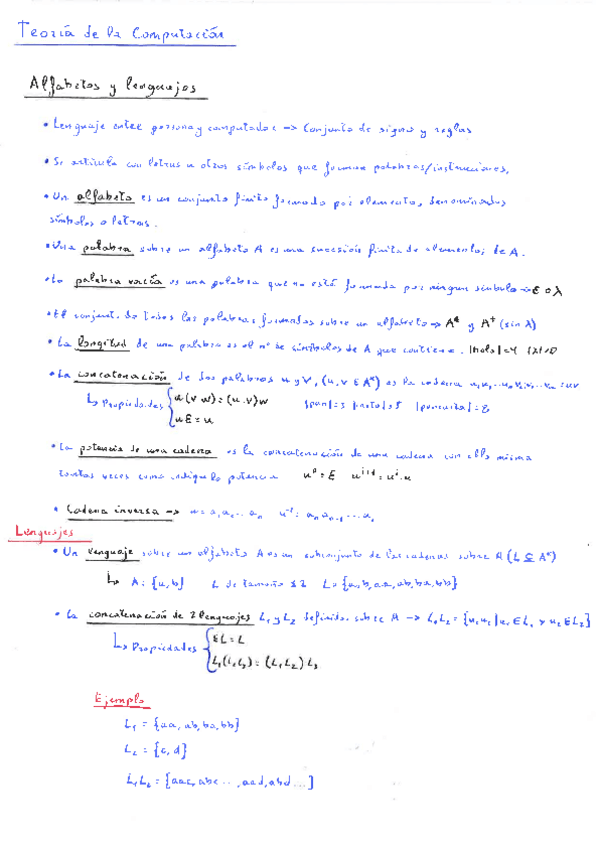 Teoría de la Computación
Alfabetos y lenguajes
• Lenguaje entre persona y computador → Conjunto de signos y reglas
• Se articula con letras u otros símbolos que forman palabras/instrucciones.
• Un alfabeto es un conjunto finito formado por elemento, denominados
símbolos o letras.
• Una palabra sobre un alfabeto A es una sucesión finita de elementos de A.
• La palabra vacía es una palabra que no está formada por ningun símbolo → E o λ
• El conjunto de todas las palabras formadas sobre un alfabeto → A* y A⁺ (sin λ)
• La longitud de una palabra es el nº de símbolos de A que contiene. |hola|=4 |λ|=0
• La concatenación de dos palabras u y V, (u, v ∈ A*) es la cadena
↳ Propiedades { u(vw) = (u.v)w |pan|=3
uE = u
• La potencia de una cadena es la concatenación de una cadena con ella misma
tantas veces como indique la potencia u⁰ = E uⁱ⁺¹ = uⁱ·u
• Cadena inversa → u = a₁a₂...aₙ u⁻¹ = aₙaₙ₋₁...a₁
Lenguajes
• Un lenguaje sobre un alfabeto A es un subconjunto de las cadenas sobre A (L ⊆ A*)
↳ L de tamaño ≤ 2
• La concatenación de 2 lenguajes L₁ y L₂ definidos sobre A → L₁L₂ = {u₁u₂ | u₁ ∈ L₁ y u₂ ∈ L₂}
↳ Propiedades { EL = L
L₁(L₂L₃) = (L₁L₂)L₃
Ejemplo
L₁ = {aa, ab, ba, bb}
L₂ = {c, d}
L₁L₂ = {aac, abc..., aad, abd...}